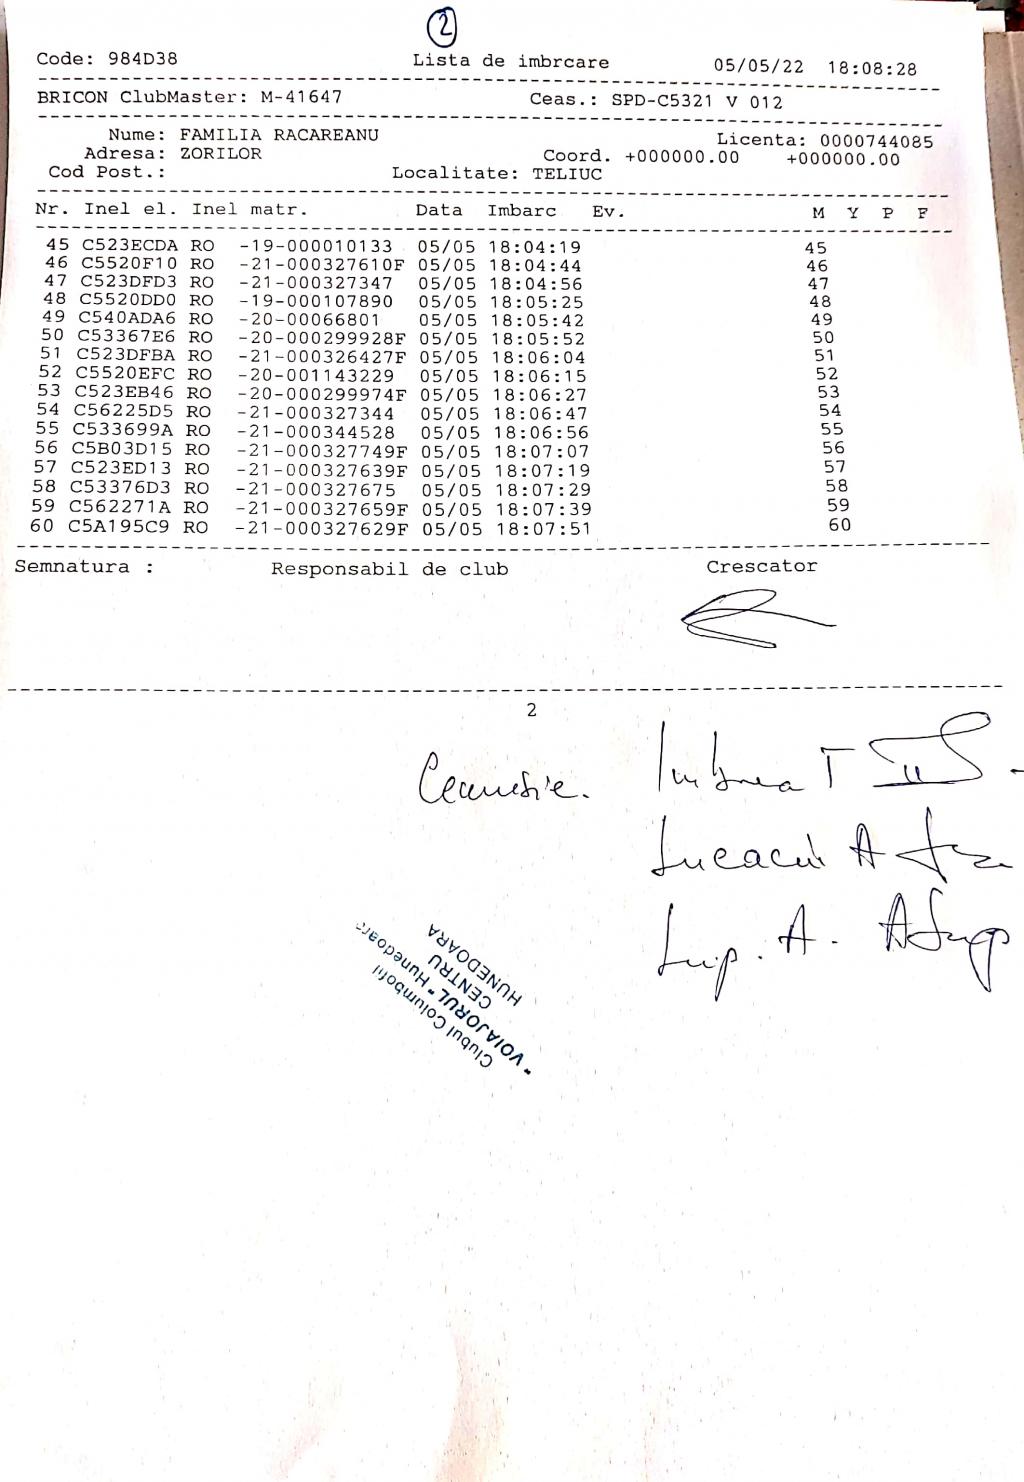 2
Code: 984D38 Lista de imbrcare 05/05/22 18:08:28
BRICON ClubMaster: M-41647 Ceas.: SPD-C5321 V 012
Nume: FAMILIA RACAREANU Licenta: 0000744085
Adresa: ZORILOR Coord. +000000.00 +000000.00
Cod Post.: Localitate: TELIUC
Nr. Inel el. Inel matr. Data Imbarc Ev. M Y P F
45 C523ECDA RO -19-000010133 05/05 18:04:19 45
46 C5520F10 RO -21-000327610F 05/05 18:04:44 46
47 C523DFD3 RO -21-000327347 05/05 18:04:56 47
48 C5520DD0 RO -19-000107890 05/05 18:05:25 48
49 C540ADA6 RO -20-00066801 05/05 18:05:42 49
50 C53367E6 RO -20-000299928F 05/05 18:05:52 50
51 C523DFBA RO -21-000326427F 05/05 18:06:04 51
52 C5520EFC RO -20-001143229 05/05 18:06:15 52
53 C523EB46 RO -20-000299974F 05/05 18:06:27 53
54 C56225D5 RO -21-000327344 05/05 18:06:47 54
55 C533699A RO -21-000344528 05/05 18:06:56 55
56 C5B03D15 RO -21-000327749F 05/05 18:07:07 56
57 C523ED13 RO -21-000327639F 05/05 18:07:19 57
58 C53376D3 RO -21-000327675 05/05 18:07:29 58
59 C562271A RO -21-000327659F 05/05 18:07:39 59
60 C5A195C9 RO -21-000327629F 05/05 18:07:51 60
Semnatura : Responsabil de club Crescator
2
Lup. A.
Clubul Columbofil
"VOIAJORUL" Hunedoara
CENTRU
HUNEDOARA